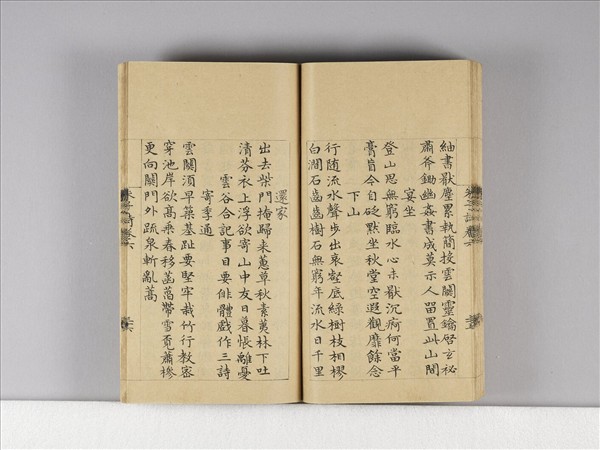 紬書厭塵累執簡投雲關靈鑰啓玄秘
蕭斧鋤幽姦書成莫示人留置此山間
宴坐
登山思無窮臨水心未厭沉痾何當平
膏肓今自砭默坐秋堂空遐觀靡餘念
下山
行随流水聲步出哀壑底綠樹枝相樛
白澗石齒齒樹石無窮年流水日千里
還家
出去柴門掩歸来蕙草秋素荑林下吐
清芬衣上浮欲寄山中友日暮悵離憂
雲谷合記事目要俳體戲作三詩
寄季通
雲關須早築基趾要堅牢栽竹行教密
穿池岸欲高乘春移菡萏帶雪覓蕭槮
更向關門外疏泉斬亂蒿